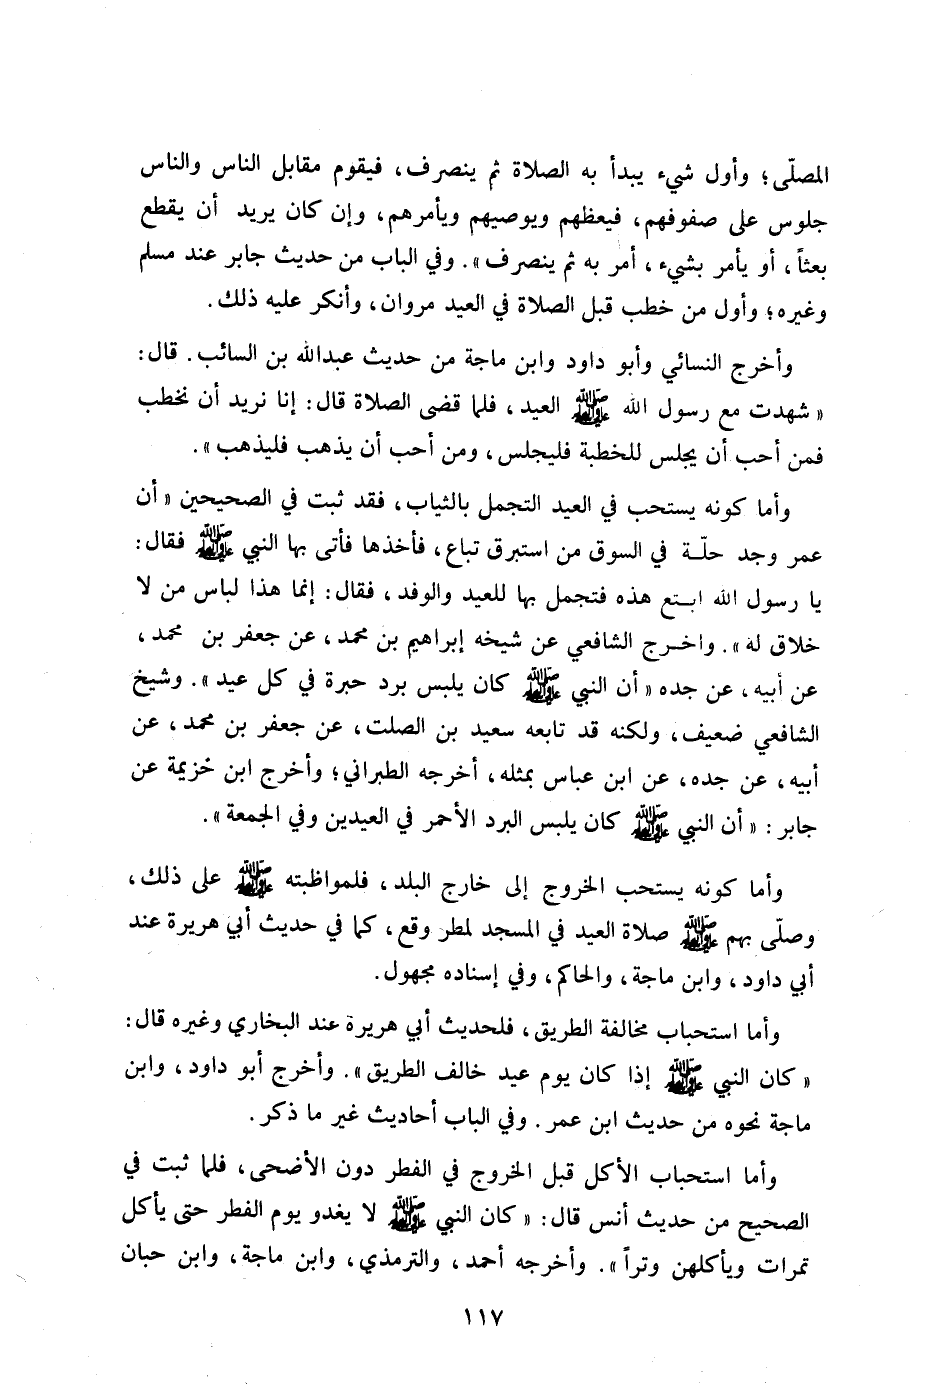 المصلّى؛ وأول شيء يبدأ به الصلاة ثم ينصرف، فيقوم مقابل الناس والناس
جلوس على صفوفهم، فيعظهم ويوصيهم ويأمرهم، وإن كان يريد أن يقطع
بعثاً، أو يأمر بشيء، أمر به ثم ينصرف». وفي الباب من حديث جابر عند مسلم
وغيره؛ وأول من خطب قبل الصلاة في العيد مروان، وأنكر عليه ذلك.
وأخرج النسائي وأبو داود وابن ماجة من حديث عبدالله بن السائب. قال:
«شهدت مع رسول الله ﷺ العيد، فلما قضى الصلاة قال: إنا نريد أن نخطب
فمن أحب أن يجلس للخطبة فليجلس، ومن أحب أن يذهب فليذهب».
وأما كونه يستحب في العيد التجمل بالثياب، فقد ثبت في الصحيحين «أن
عمر وجد حلّة في السوق من استبرق تباع، فأخذها فأتى بها النبي ﷺ فقال:
يا رسول الله ابتع هذه فتجمل بها للعيد والوفد، فقال: إنما هذا لباس من لا
خلاق له». واخرج الشافعي عن شيخه إبراهيم بن محمد، عن جعفر بن محمد،
عن أبيه، عن جده «أن النبي ﷺ كان يلبس برد حبرة في كل عيد». وشيخ
الشافعي ضعيف، ولكنه قد تابعه سعيد بن الصلت، عن جعفر بن محمد، عن
أبيه، عن جده، عن ابن عباس بمثله، أخرجه الطبراني؛ وأخرج ابن خزيمة عن
جابر: «أن النبي ﷺ كان يلبس البرد الأحمر في العيدين وفي الجمعة».
وأما كونه يستحب الخروج إلى خارج البلد، فلمواظبته ﷺ على ذلك،
وصلّى بهم ﷺ صلاة العيد في المسجد لمطر وقع، كما في حديث أبي هريرة عند
أبي داود، وابن ماجة، والحاكم، وفي إسناده مجهول.
وأما استحباب مخالفة الطريق، فلحديث أبي هريرة عند البخاري وغيره قال:
«كان النبي ﷺ إذا كان يوم عيد خالف الطريق». وأخرج أبو داود، وابن
ماجة نحوه من حديث ابن عمر. وفي الباب أحاديث غير ما ذكر.
وأما استحباب الأكل قبل الخروج في الفطر دون الأضحى، فلما ثبت في
الصحيح من حديث أنس قال: «كان النبي ﷺ لا يغدو يوم الفطر حتى يأكل
تمرات ويأكلهن وتراً». وأخرجه أحمد، والترمذي، وابن ماجة، وابن حبان
١١٧